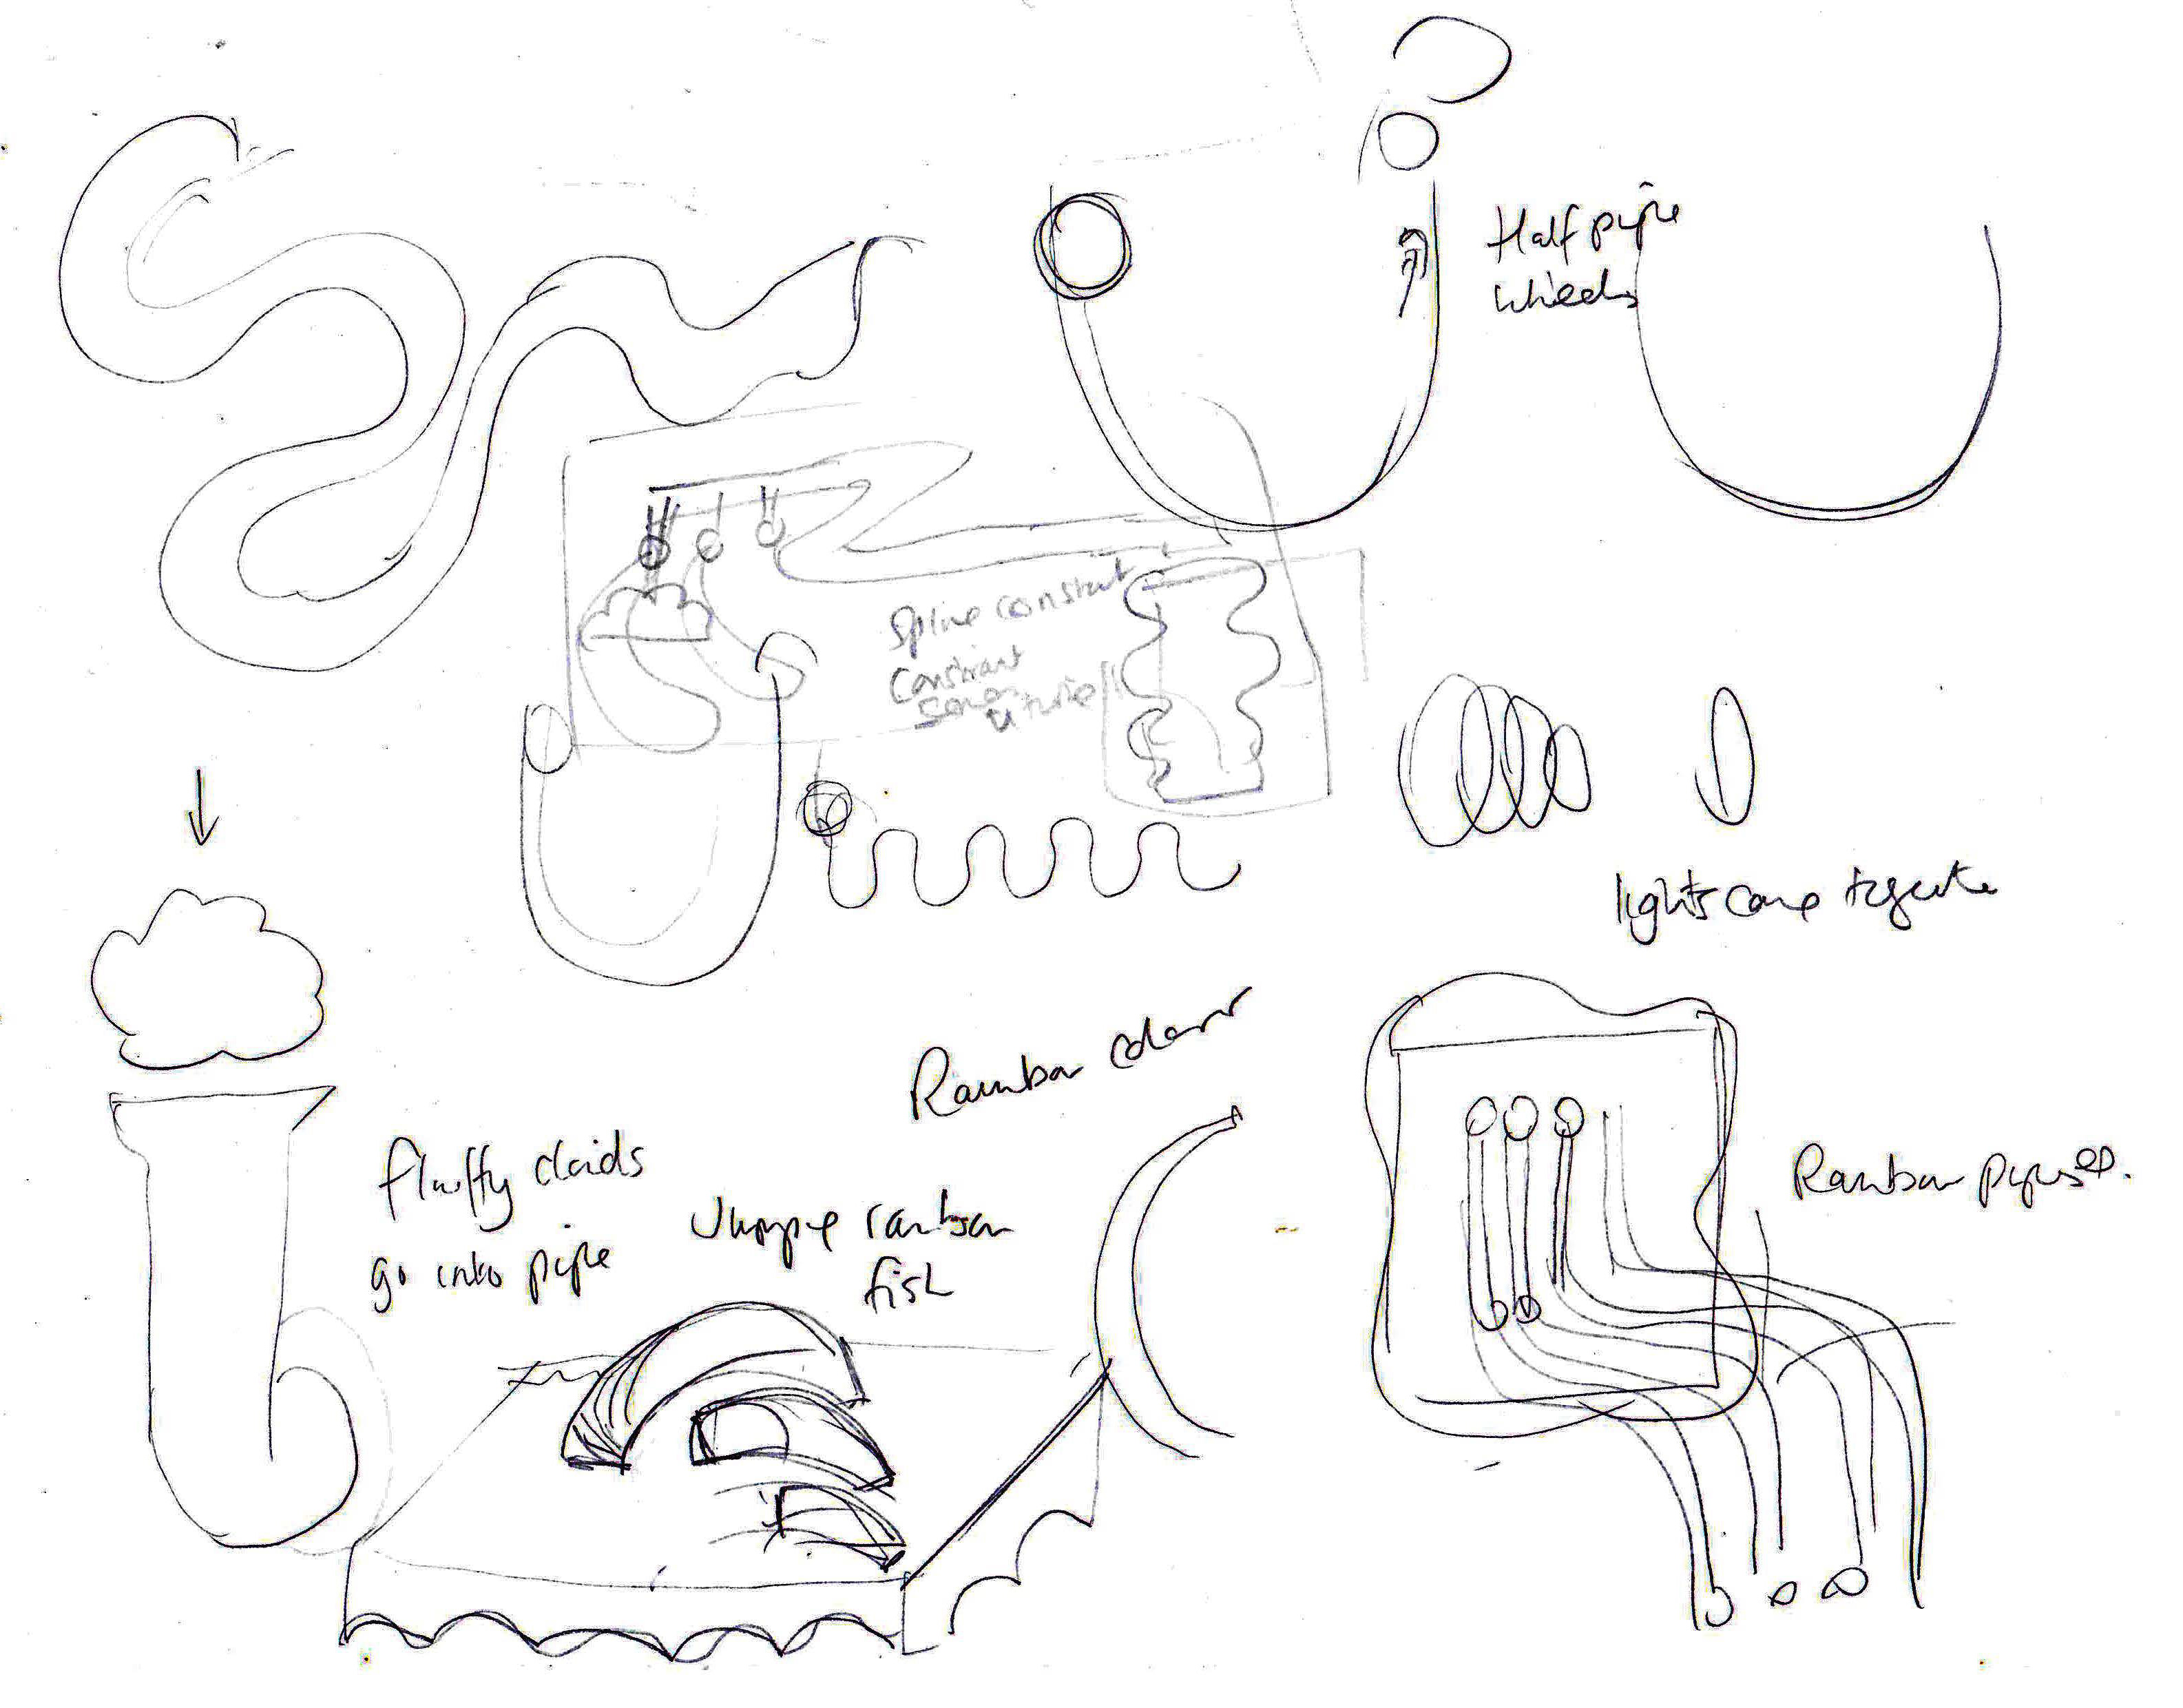 Half pipe
wheels
Spline constraint
Constraint
lights come together
Rainbow colour
fluffy clouds
go into pipe
Jumping rainbow
fish
Rainbow pipes